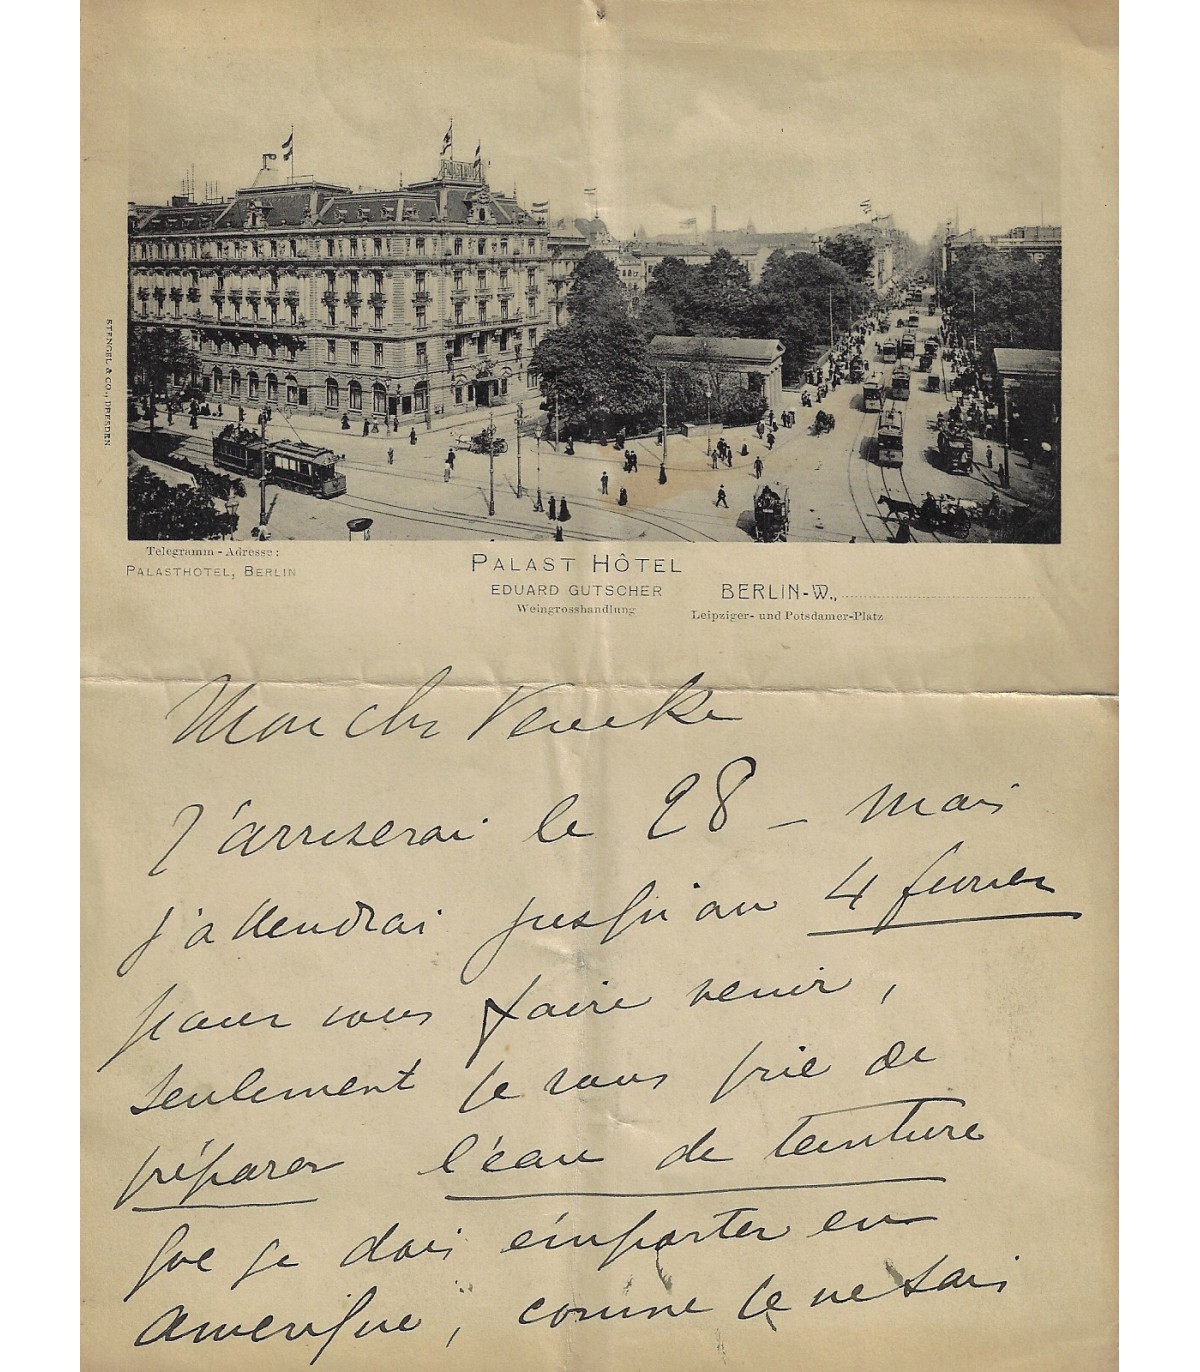 PALAST HOTEL
STENGEL & CO., DRESDEN
Telegramm - Adresse:
PALASTHOTEL, BERLIN
PALAST HÔTEL
EDUARD GUTSCHER
Weingrosshandlung
BERLIN-W.,
Leipziger- und Potsdamer-Platz
Mon cher
J'arriverai le 28 - mais
j'attendrai jusqu'au 4 fevrier
pour vous faire venir,
seulement je vous prie de
préparer l'eau de teinture
que je dois emporter en
Amerique, comme je ne sais